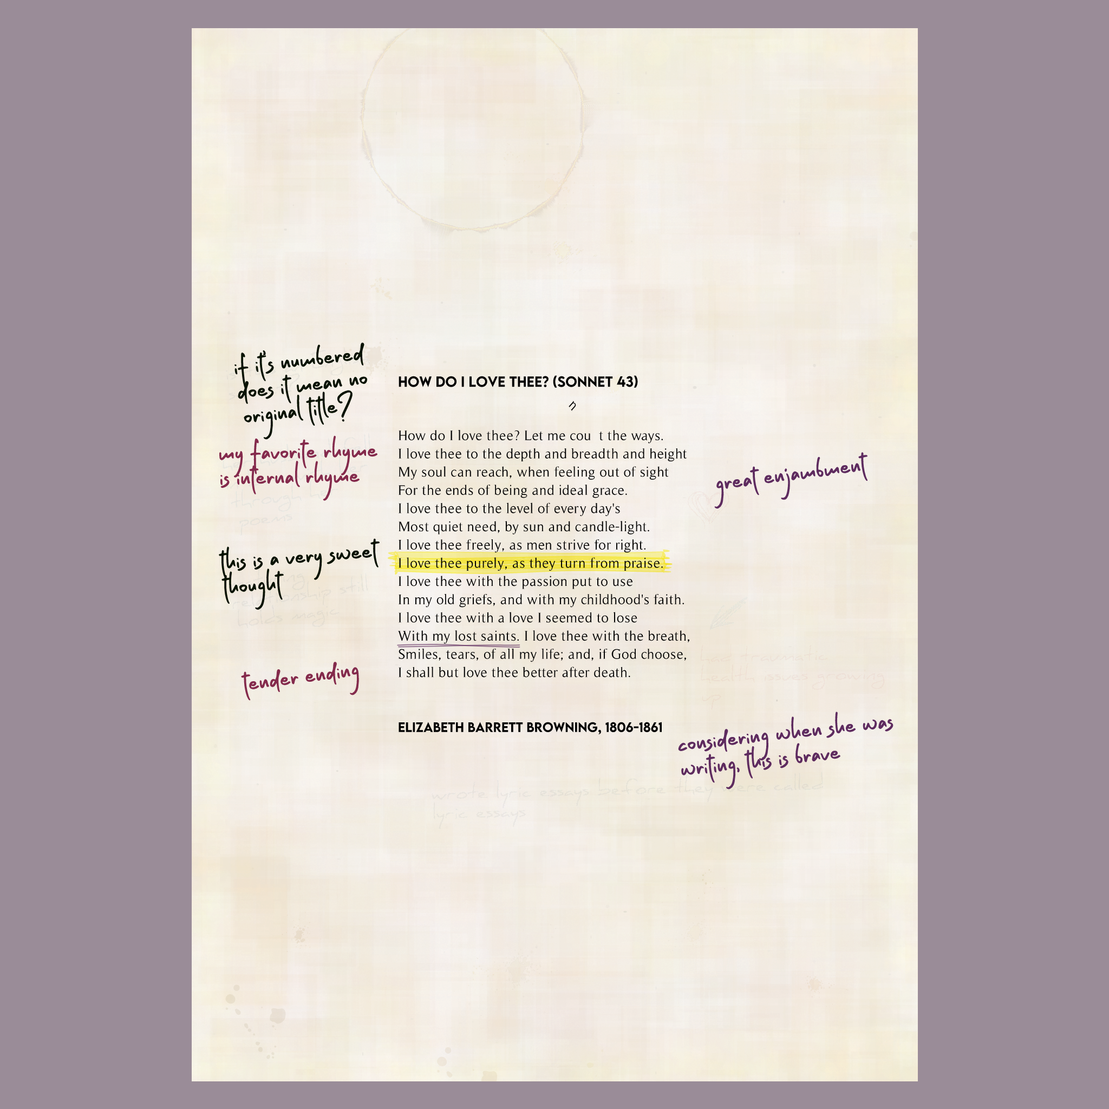 if it's numbered
does it mean no
original title?
my favorite rhyme
is internal rhyme
this is a very sweet
thought
tender ending
HOW DO I LOVE THEE? (SONNET 43)
How do I love thee? Let me cou t the ways.
I love thee to the depth and breadth and height
My soul can reach, when feeling out of sight
For the ends of being and ideal grace.
I love thee to the level of every day's
Most quiet need, by sun and candle-light.
I love thee freely, as men strive for right.
I love thee purely, as they turn from praise.
I love thee with the passion put to use
In my old griefs, and with my childhood's faith.
I love thee with a love I seemed to lose
With my lost saints. I love thee with the breath,
Smiles, tears, of all my life; and, if God choose,
I shall but love thee better after death.
ELIZABETH BARRETT BROWNING, 1806-1861
great enjambment
considering when she was
writing, this is brave
wrote lyric essays before they were called
lyric essays